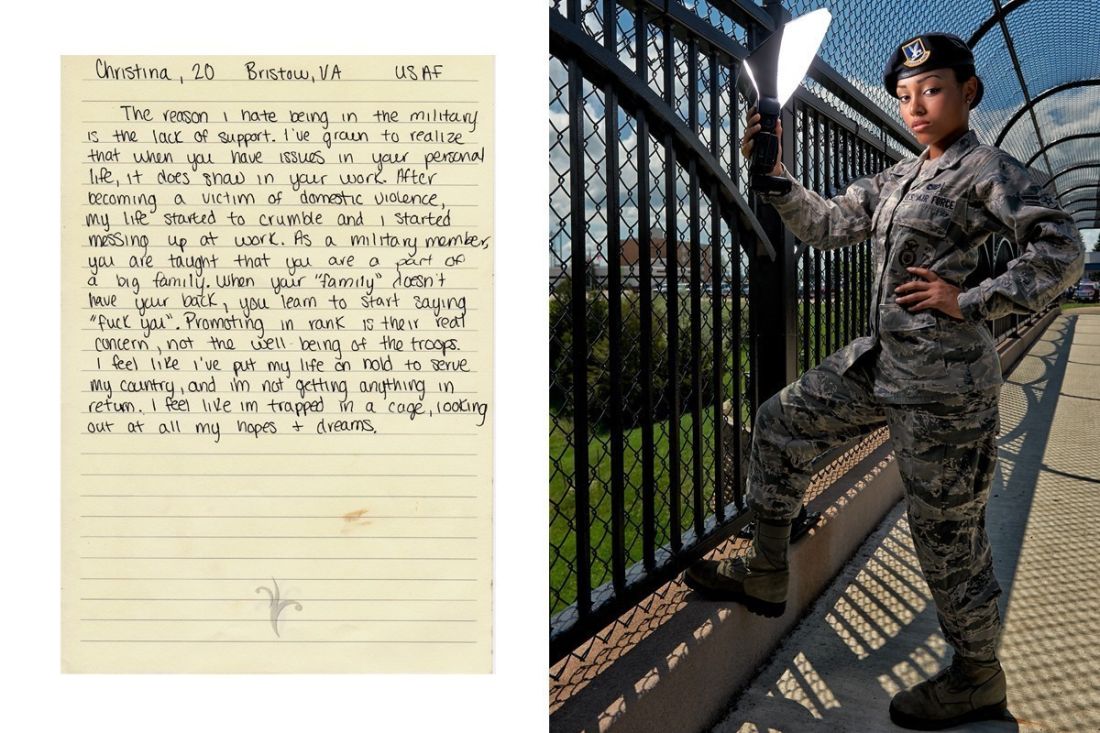 Christina, 20 Bristow, VA USAF
The reason I hate being in the military
is the lack of support. I've grown to realize
that when you have issues in your personal
life, it does show in your work. After
becoming a victim of domestic violence,
my life started to crumble and I started
messing up at work. As a military member,
you are taught that you are a part of
a big family. When your "family" doesn't
have your back, you learn to start saying
"fuck you". Promoting in rank is their real
concern, not the well-being of the troops.
I feel like I've put my life on hold to serve
my country, and im not getting anything in
return. I feel like im trapped in a cage, looking
out at all my hopes + dreams.
U.S. AIR FORCE